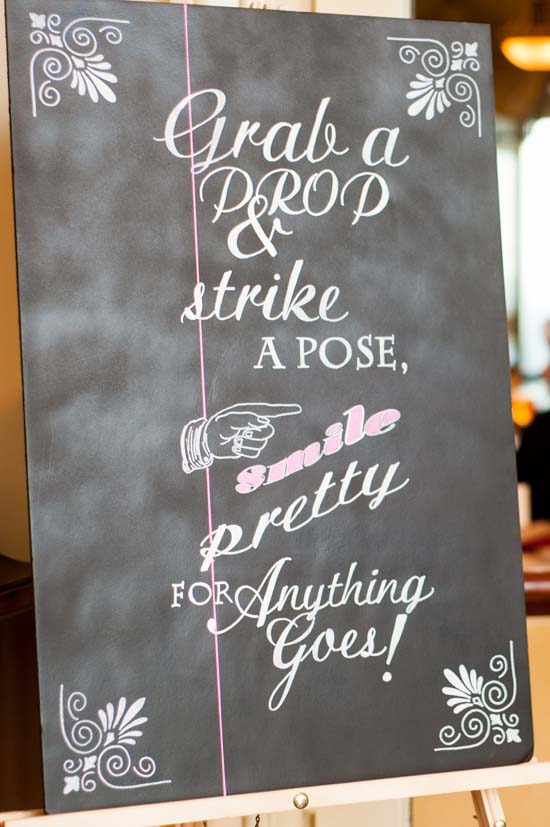 Grab a
PROP
&
strike
A POSE,
smile
pretty
FOR Anything
Goes!